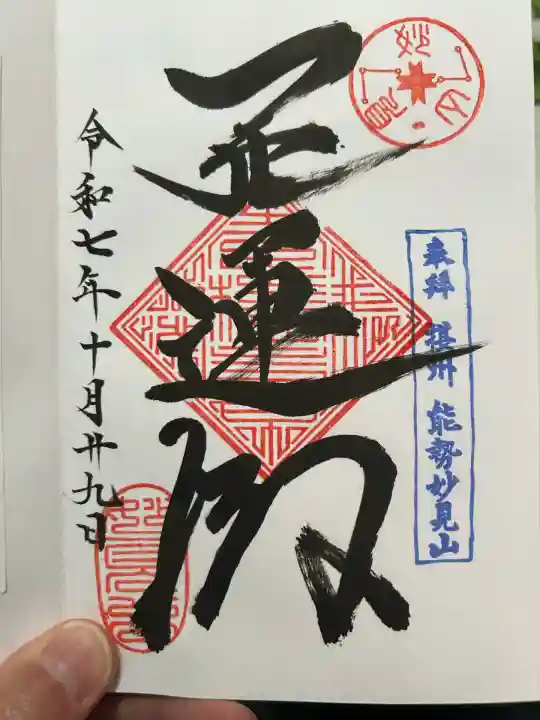 奉拝 摂州 能勢妙見山
開運殿
令和七年十月廿九日